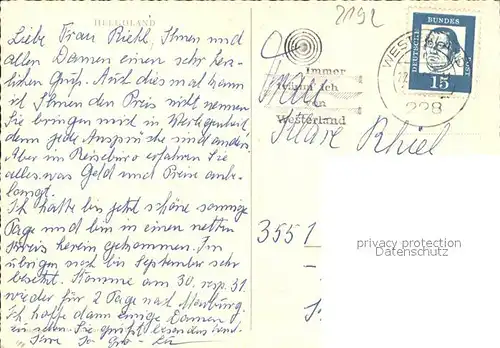 HELGOLAND
Liebe Frau Riehl, Ihnen und
allen Damen einen sehr herz-
lichen Gruß. Auch dies mal kann
ich Ihnen den Preis nicht nennen
Sie bringen mich in Verlegenheit
denn jede Ansprüche sind anders.
Aber im Reisebüro erfahren Sie
alles was Geld und Preise anbe-
langt.
Ich hatte bis jetzt schöne sonnige
Tage und bin in einen netten
Kreis herein gekommen. Im
übrigen noch bis September sehr
besetzt. Komme am 30. resp. 31.
wieder für 2 Tage nach
Ich hoffe dann einige Damen
zu sehen. Sie grüßt besonders
Ihre
2192
Immer
wenn ich
an
Westerland
DEUTSCHE BUNDESPOST
15
WESTERLAND
228
Frau
Kläre Rhiel
3551
privacy protection
Datenschutz